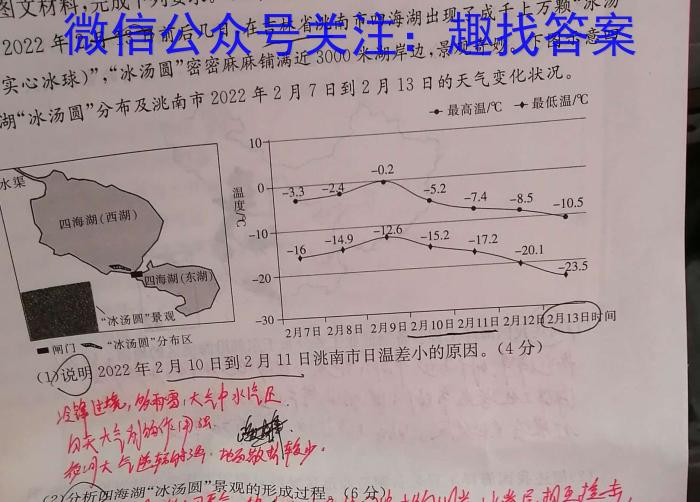 图文材料，完成下列要求。
2022年 前后几日，在吉林省洮南市四海湖出现了成千上万颗“冰汤
微信公众号关注：趣找答案
实心冰球)”，“冰汤圆”密密麻麻铺满近3000米湖岸边，景观奇妙。下图示意四
湖“冰汤圆”分布及洮南市2022年2月7日到2月13日的天气变化状况。
最高温/℃ 最低温/℃
水渠
四海湖(西湖)
四海湖(东湖)
“冰汤圆”景观
闸门 “冰汤圆”分布区
温度/℃
10
0
-10
-20
-30
-3.3 -2.4 -0.2 -5.2 -7.4 -8.5 -10.5
-16 -14.9 -12.6 -15.2 -17.2 -20.1 -23.5
2月7日 2月8日 2月9日 2月10日 2月11日 2月12日 2月13日 时间
(1)说明2022年2月10日到2月11日洮南市日温差小的原因。(4分)
冷锋过境，多雨雪，大气中水汽足
白天大气削弱作用强
夜间大气逆辐射强，地面散热较少。
(2)分析四海湖“冰汤圆”景观的形成过程。(6分)